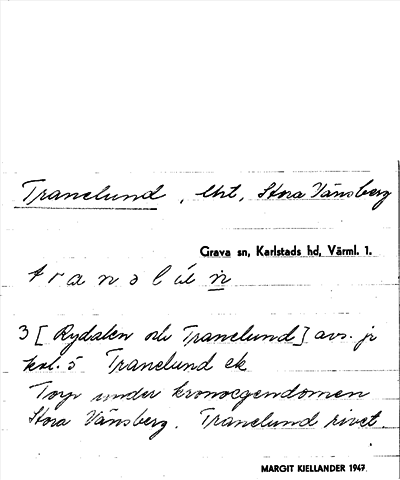 Tranelund, lht, Stora Vänsberg
Grava sn, Karlstads hd, Värml. 1.
3 [Rydalen och Tranelund] avs. jr
kol. 5 Tranelund ek
Torp under kronoegendomen
Stora Vänsberg. Tranelund rivet.
MARGIT KJELLANDER 1947